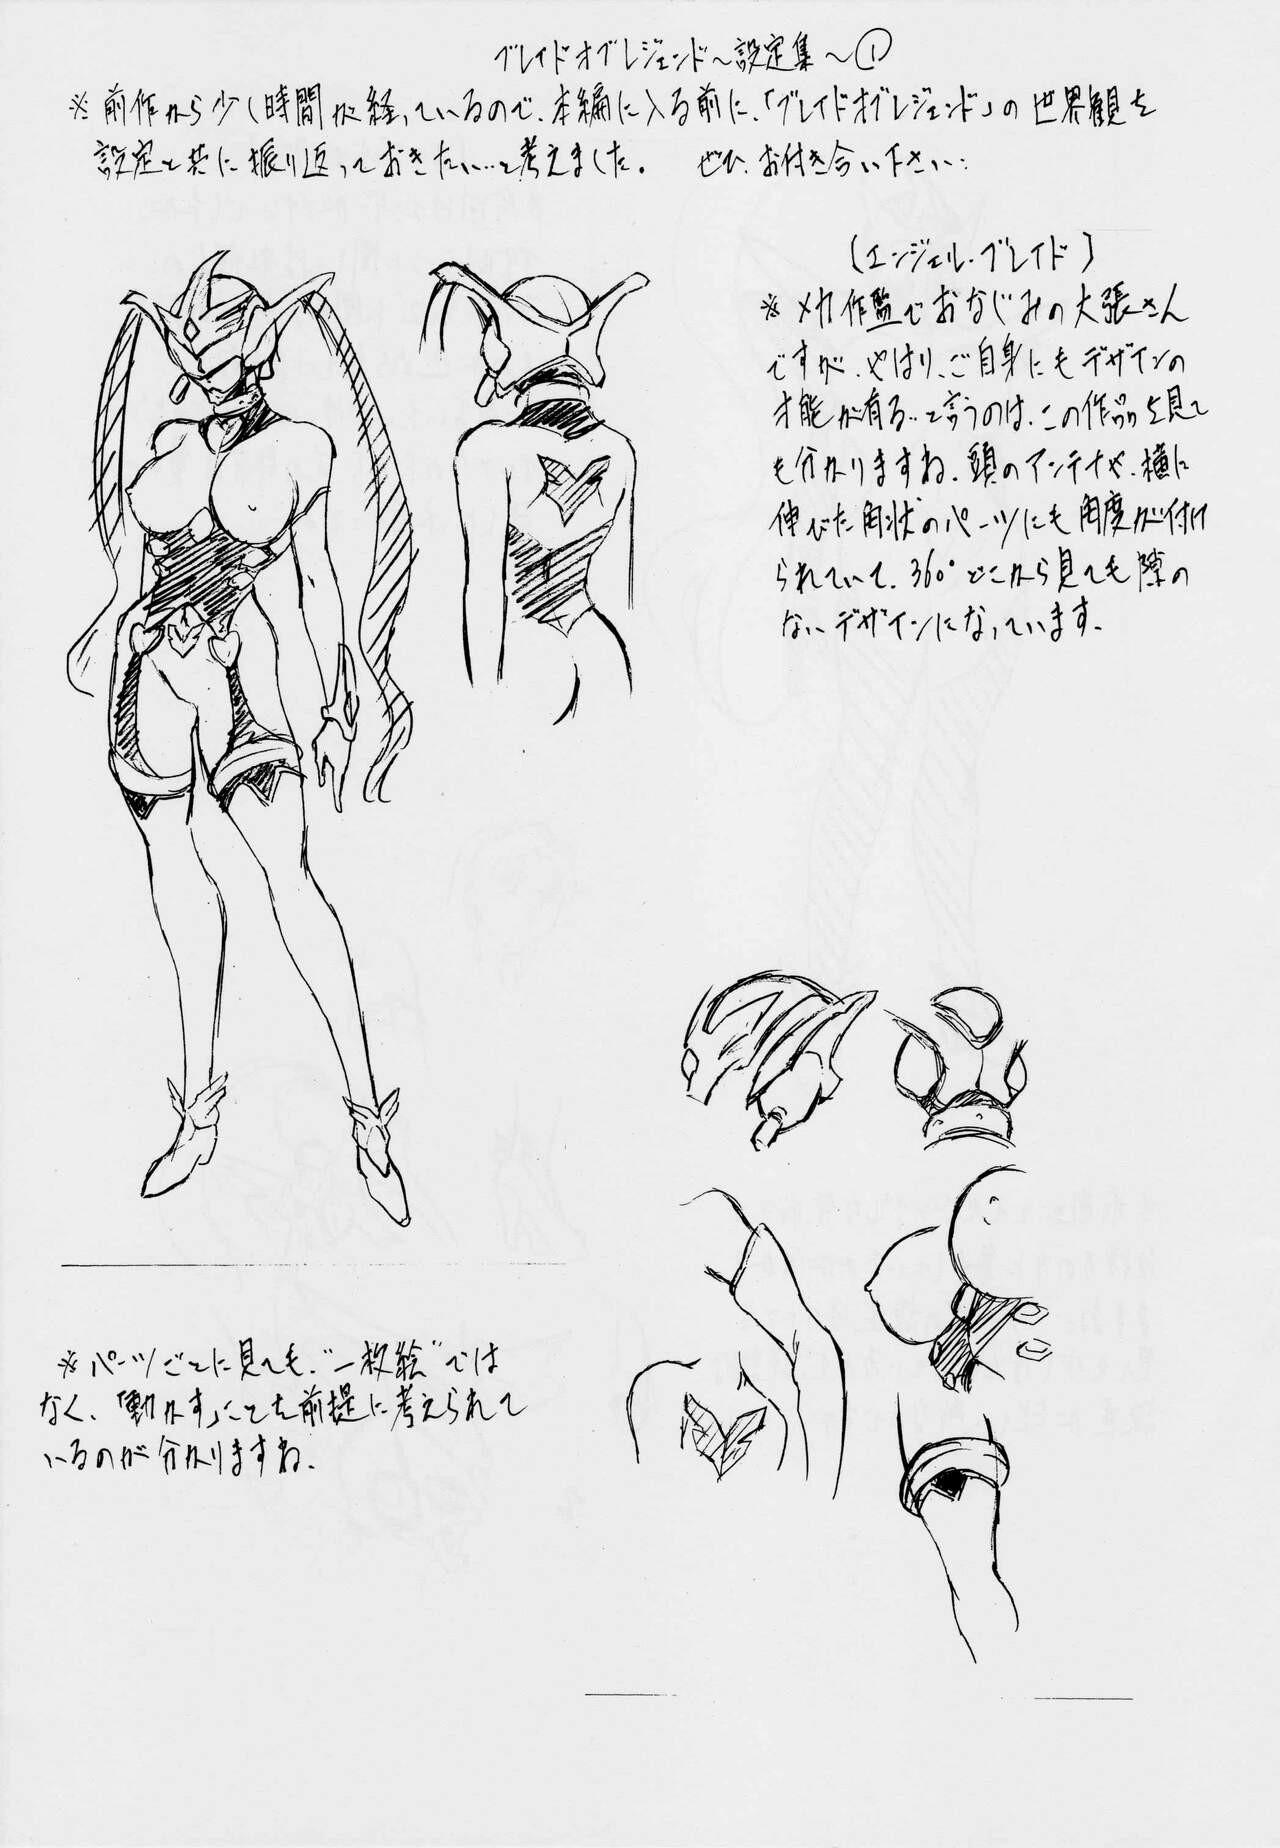 ブレイドオブレジェンド～設定集～①
※前作から少し時間が経っているので、本編に入る前に、「ブレイドオブレジェンド」の世界観を
設定と共に振り返っておきたい…と考えました。 ぜひ、お付き合い下さい:
(エンジェル・ブレイド)
※メカ作監でおなじみの大張さん
ですが、やはり、ご自身にもデザインの
才能が有る…と言うのは、この作品を見て
も分かりますね、頭のアンテナや、横に
伸びた角状のパーツにも角度が付け
られていて、360°どこから見ても隙の
ないデザインになっています、
※パーツごとに見ても、"一枚絵"では
なく、「動かす」ことを前提に考えられて
いるのが分かりますね、